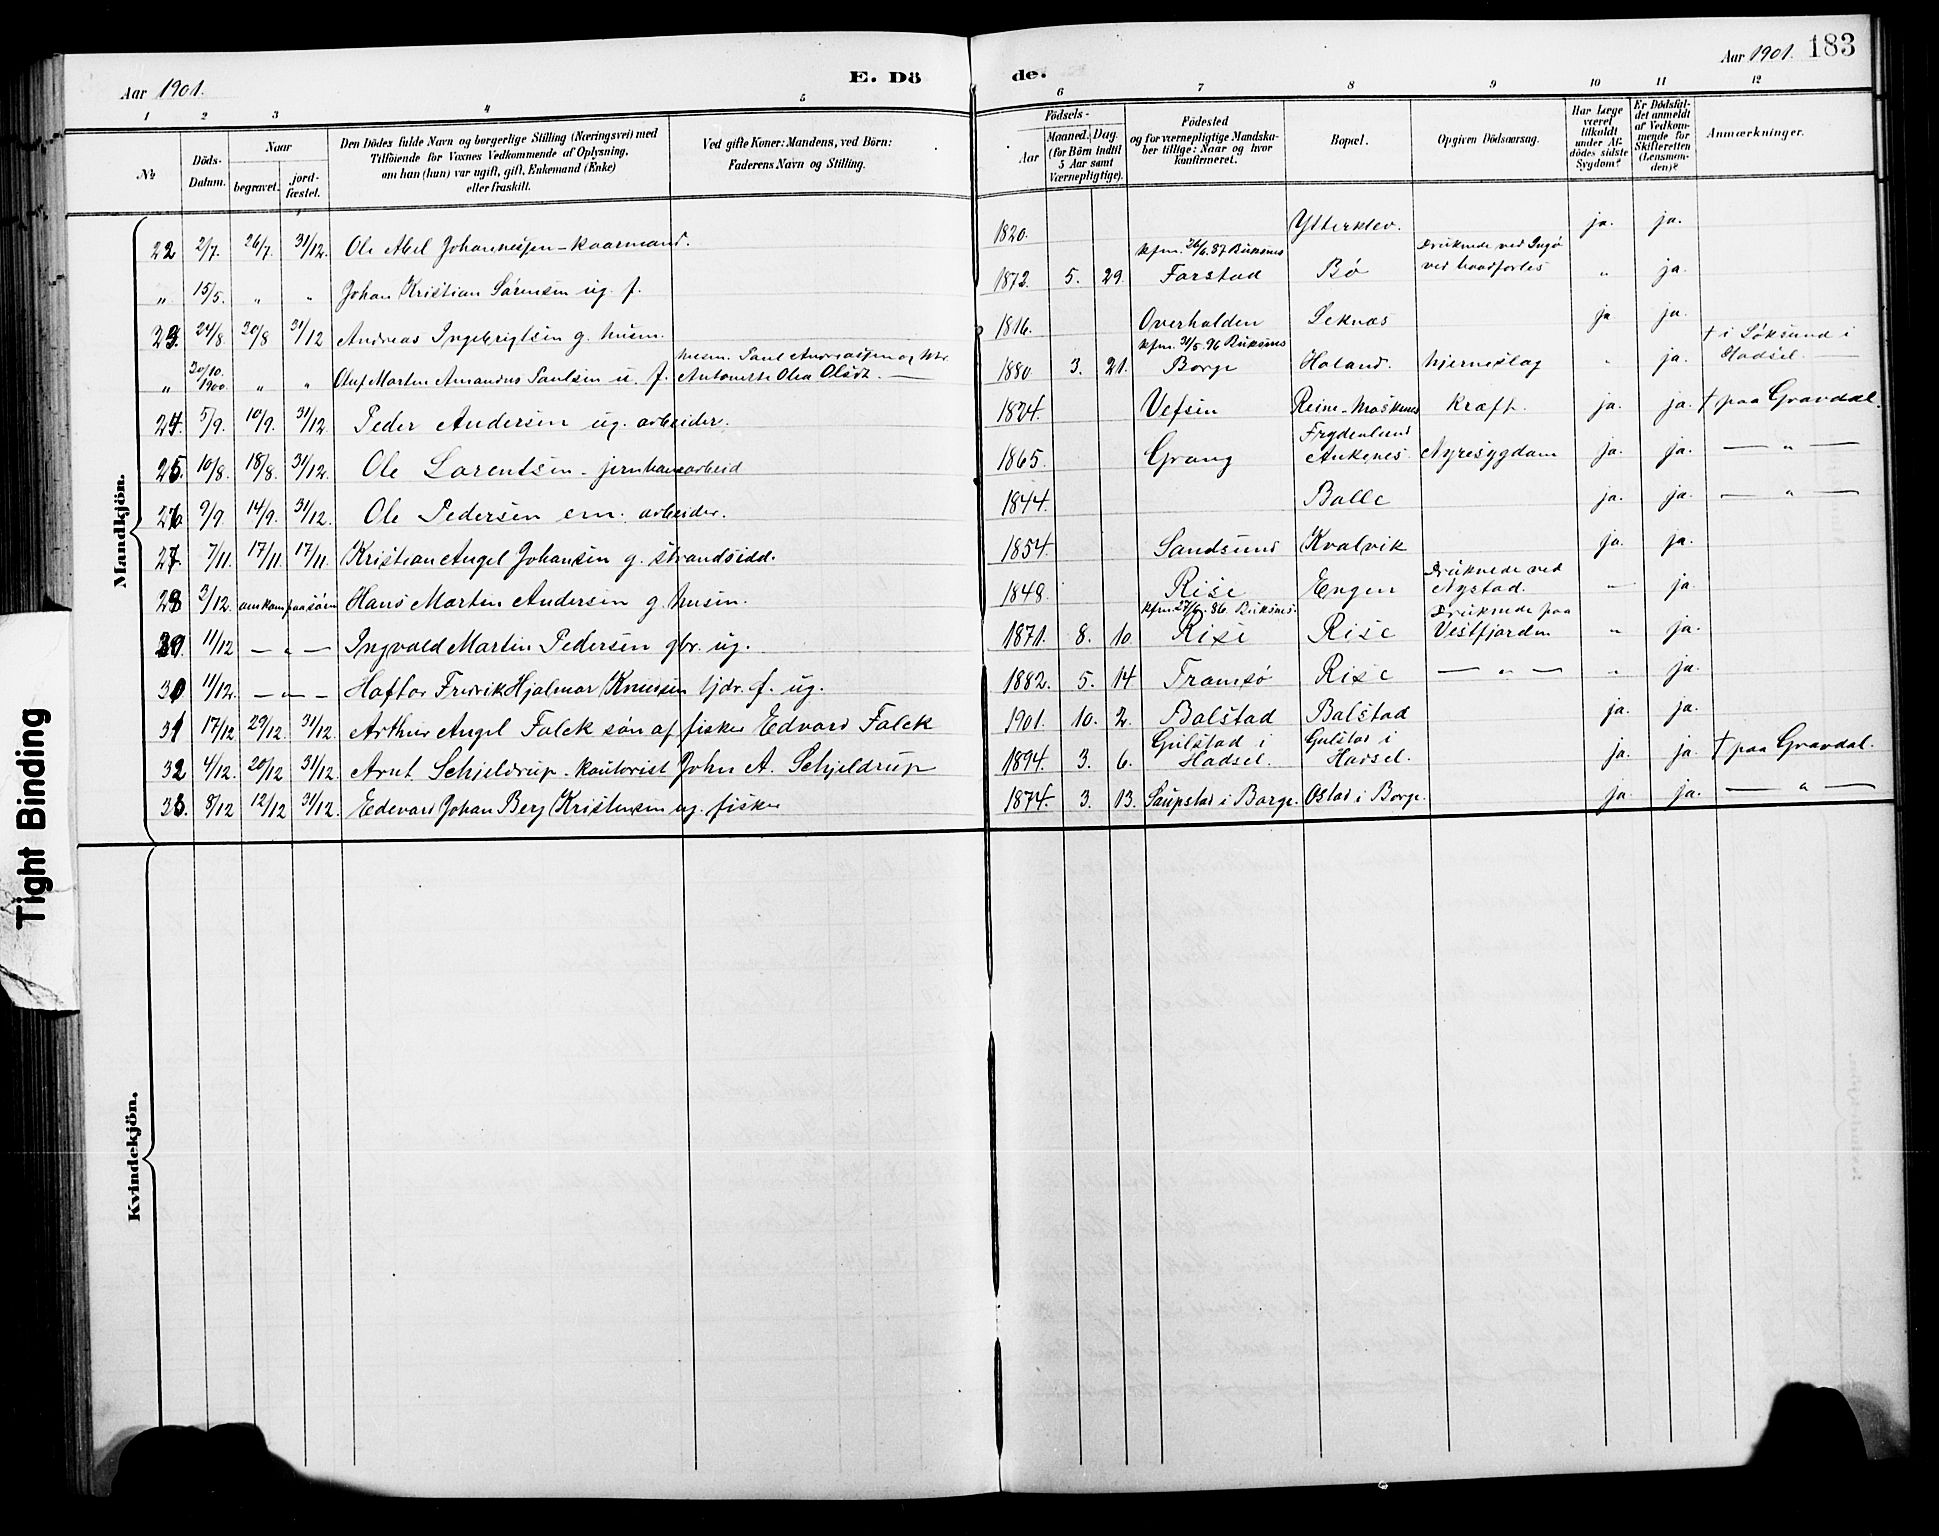 Aar 1901.
E. Dö
de.
Aar 1901. 183
1 2 3 4 5 6 7 8 9 10 11 12
№
Döds-
Datum.
Naar
begravet.
jord-
fæstet.
Den Dödes fulde Navn og borgerlige Stilling (Næringsvei) med
Tilföiende for Voxnes Vedkommende af Oplysning,
om han (hun) var ugift, gift, Enkemand (Enke)
eller fraskilt.
Ved gifte Koner: Mandens, ved Börn:
Faderens Navn og Stilling.
Födsels-
Aar
Maaned. Dag.
(for Börn indtil
5 Aar samt
Værnepligtige).
Födested
og for værnepligtige Mandska-
ber tillige: Naar og hvor
konfirmeret.
Bopæl.
Opgiven Dödsaarsag.
Har Læge
været
tilkaldt
under Af-
dödes sidste
Sygdom?
Er Dödsfal-
det anmeldt
af Vedkom-
mende for
Skifteretten
(Lensman-
den)?
Anmærkninger.
Mandkjön.
22 2/7. 26/7. 31/12. Ole Abel Johannessen - kaarmand. 1820. Ytterklev. ja. ja.
" 15/5. " " Johan Kristian Sörensen ug. f. 1872. 5. 29. kfm. 26/6. 87 Buksnes Farstad Bø Druknede ved Ingö ved baadforlis " ja.
23. 24/8. 30/8 31/12 Andreas Ingebrigtsen g. husm. 1816. Overhalden Leknæs ja ja.
" 20/10. 1900. " " Oluf Martin Amandus Paulsen u. f. husm. Paul Andreassen og Antonette Olea Olsdt. 1880 3. 21. kfm. 31/5. 96 Buksnes Borge Haland. hjerneslag " ja. † i Söksund i Hadsel.
24. 5/9. 10/9. 31/12. Peder Andersen ug. arbeider. 1824. Vefsen Reine-Moskenes Kræft. ja. ja. † paa Gravdal.
25. 10/8. 18/8. 31/12. Ole Lorentsen - jernbanearbeid 1865. Grong Frydenlund Ankenes. Nyresygdom ja. ja. — " —
26. 9/9. 14/9. 31/12. Ole Pedersen em. arbeider. 1844. Balle ja. ja. — " —
27. 7/11. 17/11. 17/11. Kristian Angel Johansen g. strandsidd. 1854. Sandsund Kvalvik ja. ja.
28 3/12. omkom paa söen Hans Martin Andersen g. husm. 1848. Rise Engen Druknede ved Nystad. — ja.
29. 11/12 — " — Ingvald Martin Pedersen gbr. ug. 1871. 8. 10. kfm. 27/6. 86. Buksnes. Rise Rise Druknede paa Vestfjorden " ja.
30 11/12. — " — Haftor Fredrik Hjalmar Knudsen tjdr. f. ug. 1882. 5. 14 Tromsø Rise — " — " ja.
31 17/12 29/12. 31/12. Arthur Angel Falck søn af fisker Edvard Falck 1901. 10. 2. Balstad Balstad ja. ja.
32 4/12. 20/12 31/12. Arnt Schjeldrup - kontorist John A. Schjeldrup 1894. 3. 6. Gulstad i Hadsel. Gulstad i Hadsel. ja. ja. † paa Gravdal.
33. 8/12 12/12 31/12. Edevard Johan Berg Kristensen ug. fisker 1874. 3. 13. Saupstad i Borge. Ostad i Borge. ja. ja. — " —
Kvindekjön.
Tight Binding